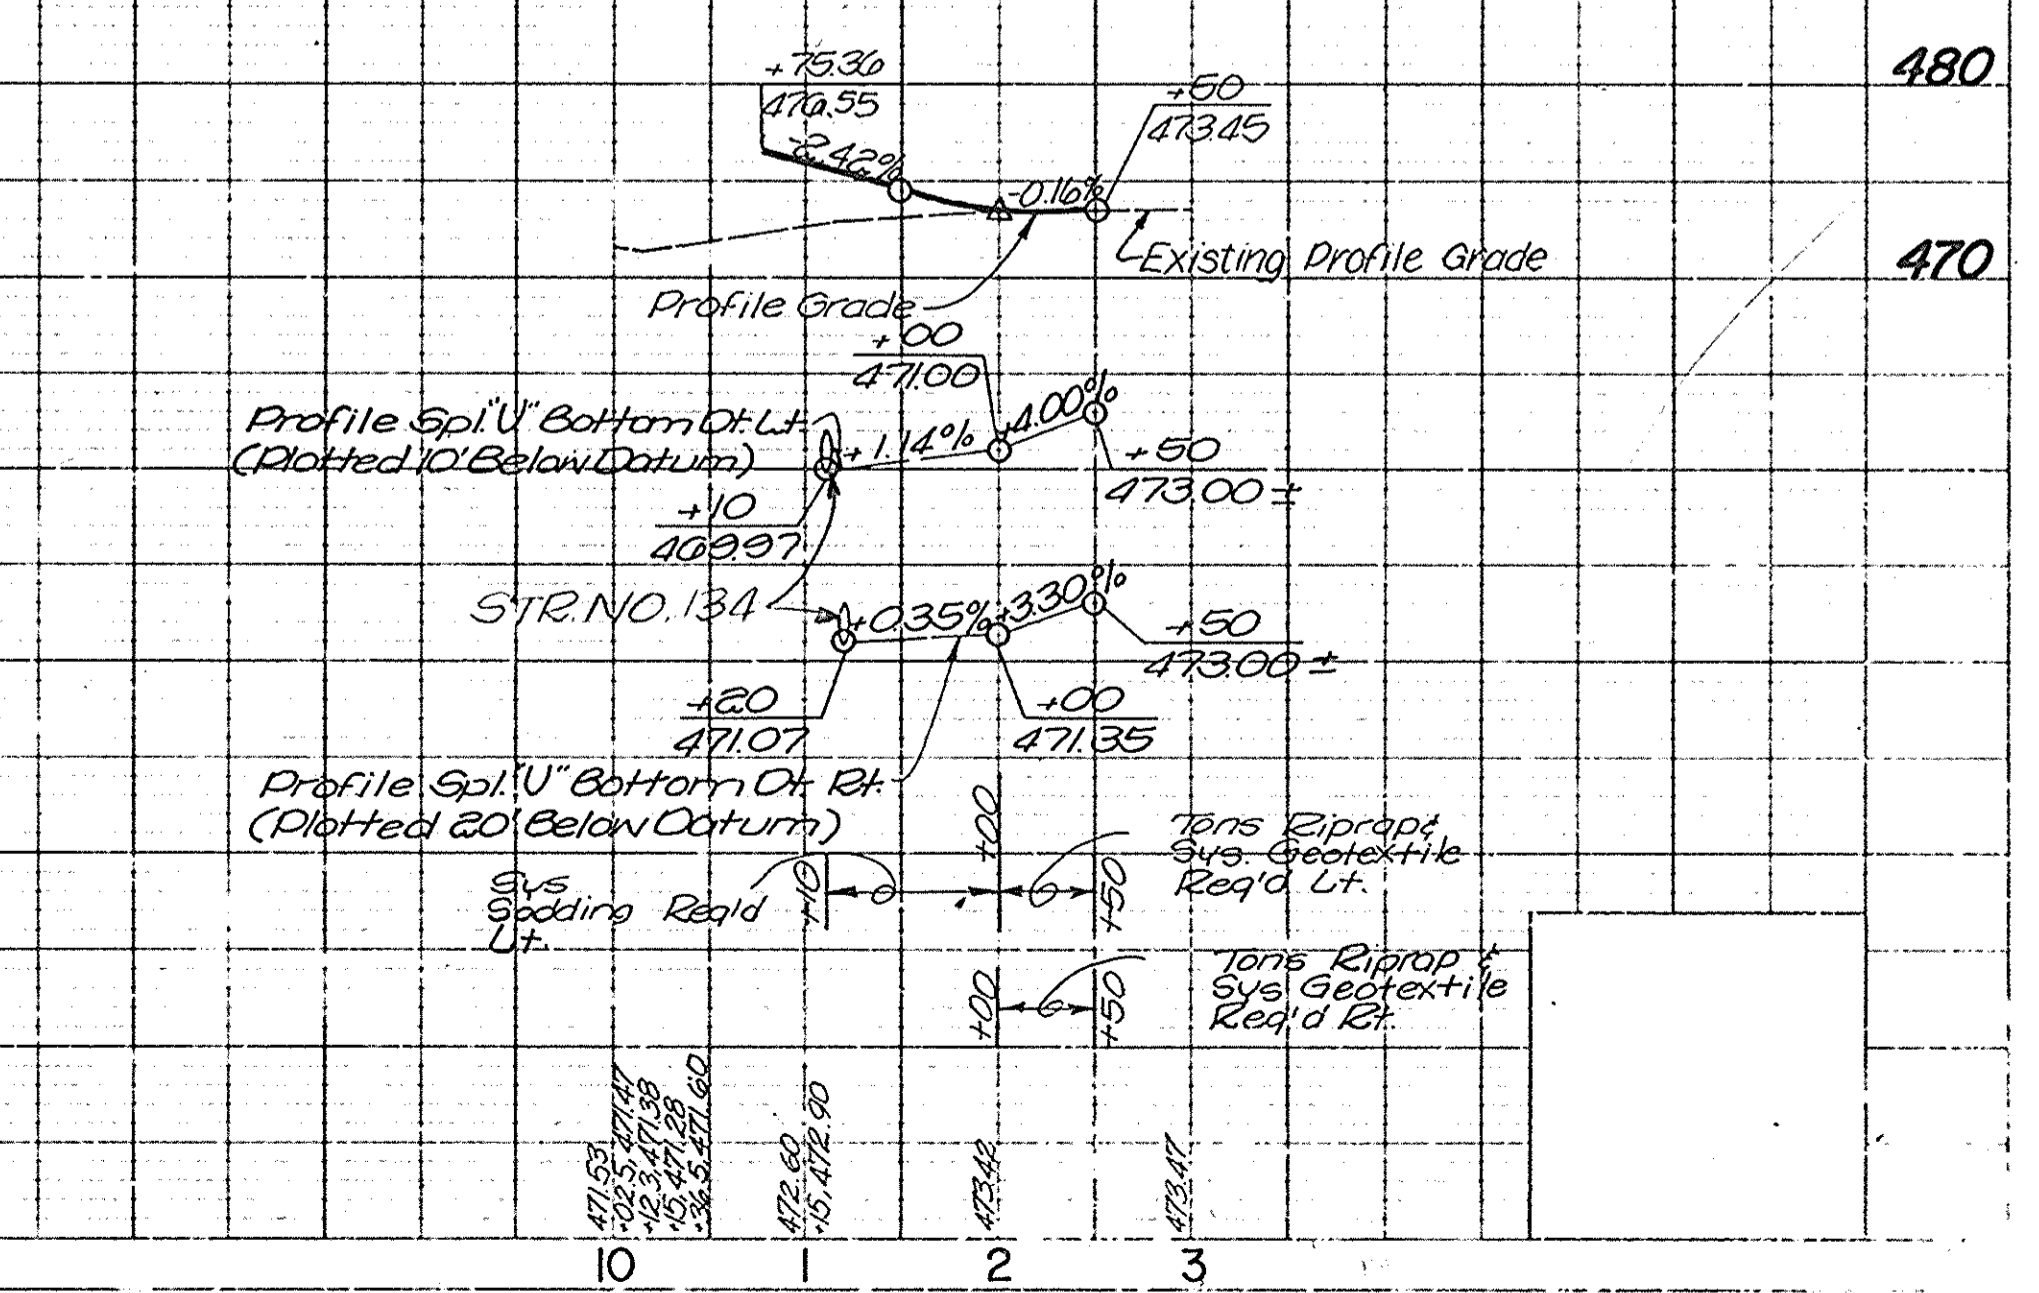 +75.36
476.55
-2.42%
+50
473.45
-0.16%
480
Existing Profile Grade
470
Profile Grade
+00
471.00
+4.00%
Profile Spl. "U" Bottom Dt. Lt.
(Plotted 10' Below Datum)
+1.14%
+50
473.00 ±
+10
469.97
STR. NO. 134
+0.35%
+3.30%
+50
473.00 ±
+20
471.07
+00
471.35
Profile Spl. "U" Bottom Dt. Rt.
(Plotted 20' Below Datum)
+00
Tons Riprap &
Sys. Geotextile
Req'd Lt.
Sys
Sodding Req'd
Lt.
+10
+50
Tons Riprap &
Sys Geotextile
Req'd Rt.
+00
+50
471.53
+02.5, 471.47
+12.3, 471.38
+15, 471.28
+36.5, 471.60
472.60
+15, 472.90
473.42
473.47
10 1 2 3